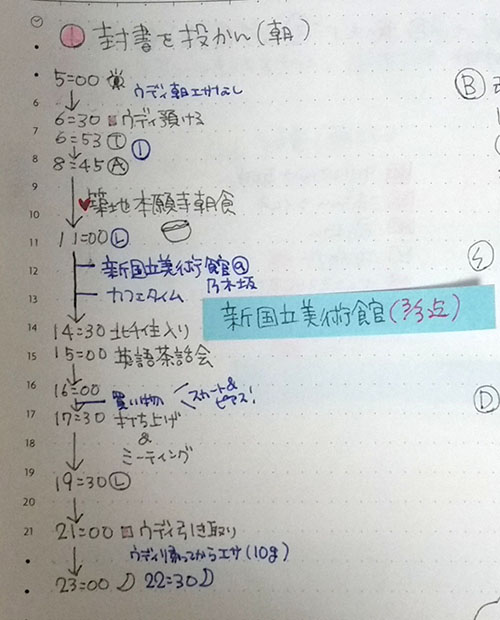 ! 封書を投かん(朝)
5:00
ウディ朝エサなし
6
6:30 ウディ預ける
7
6:53 T ①
8
8:45 A
9
♥築地本願寺朝食
10
11
11:00 L
12
新国立美術館 @
乃木坂
13
カフェタイム
新国立美術館(
14
14:30 北千住入り
15
15:00 英語茶話会
16
16:00
買い物 スカート&ピアス!
17
17:30 打ち上げ
&
18
ミーティング
19
19:30 L
20
21
21:00 ウディ引き取り
ウディ帰ってからエサ(10g)
23:00 22:30
B
D